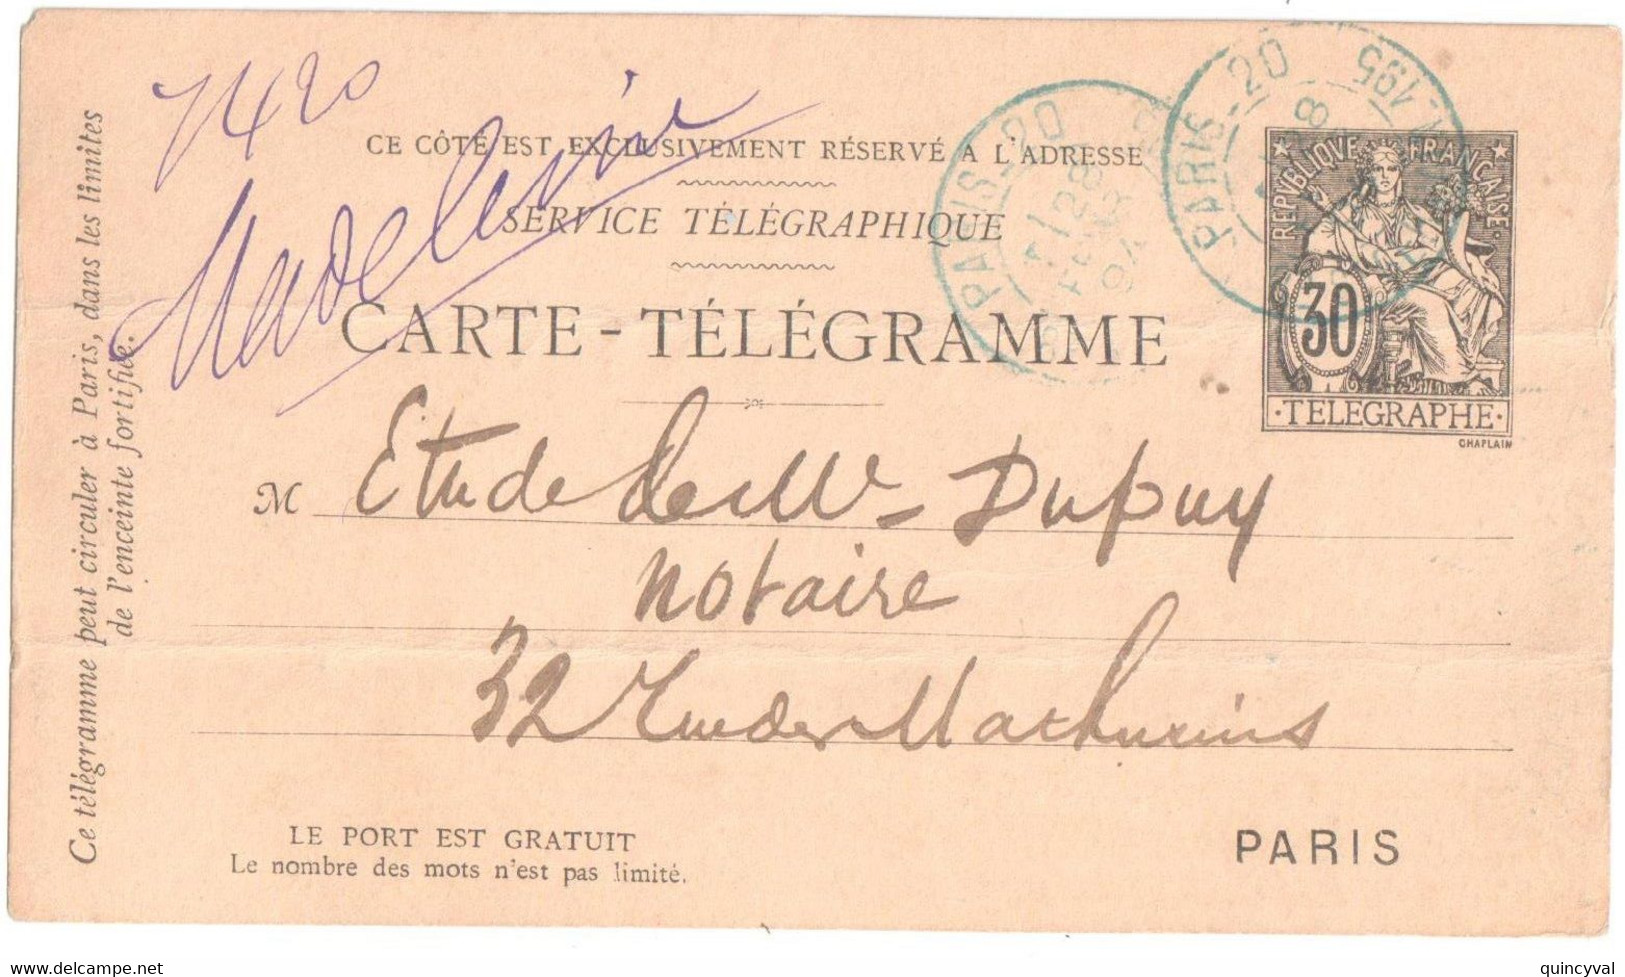 7420
Madeleine
CE CÔTÉ EST EXCLUSIVEMENT RÉSERVÉ A L'ADRESSE
SERVICE TÉLÉGRAPHIQUE
CARTE-TÉLÉGRAMME
PARIS-20
28
94
PARIS-20
195
RÉPUBLIQUE FRANÇAISE
30
·TELEGRAPHE·
CHAPLAIN
M Etude de Me Dupuy
Notaire
32 Rue des Mathurins
Ce télégramme peut circuler à Paris, dans les limites
de l'enceinte fortifiée.
LE PORT EST GRATUIT
Le nombre des mots n'est pas limité.
PARIS
www.delcampe.net
quincyval